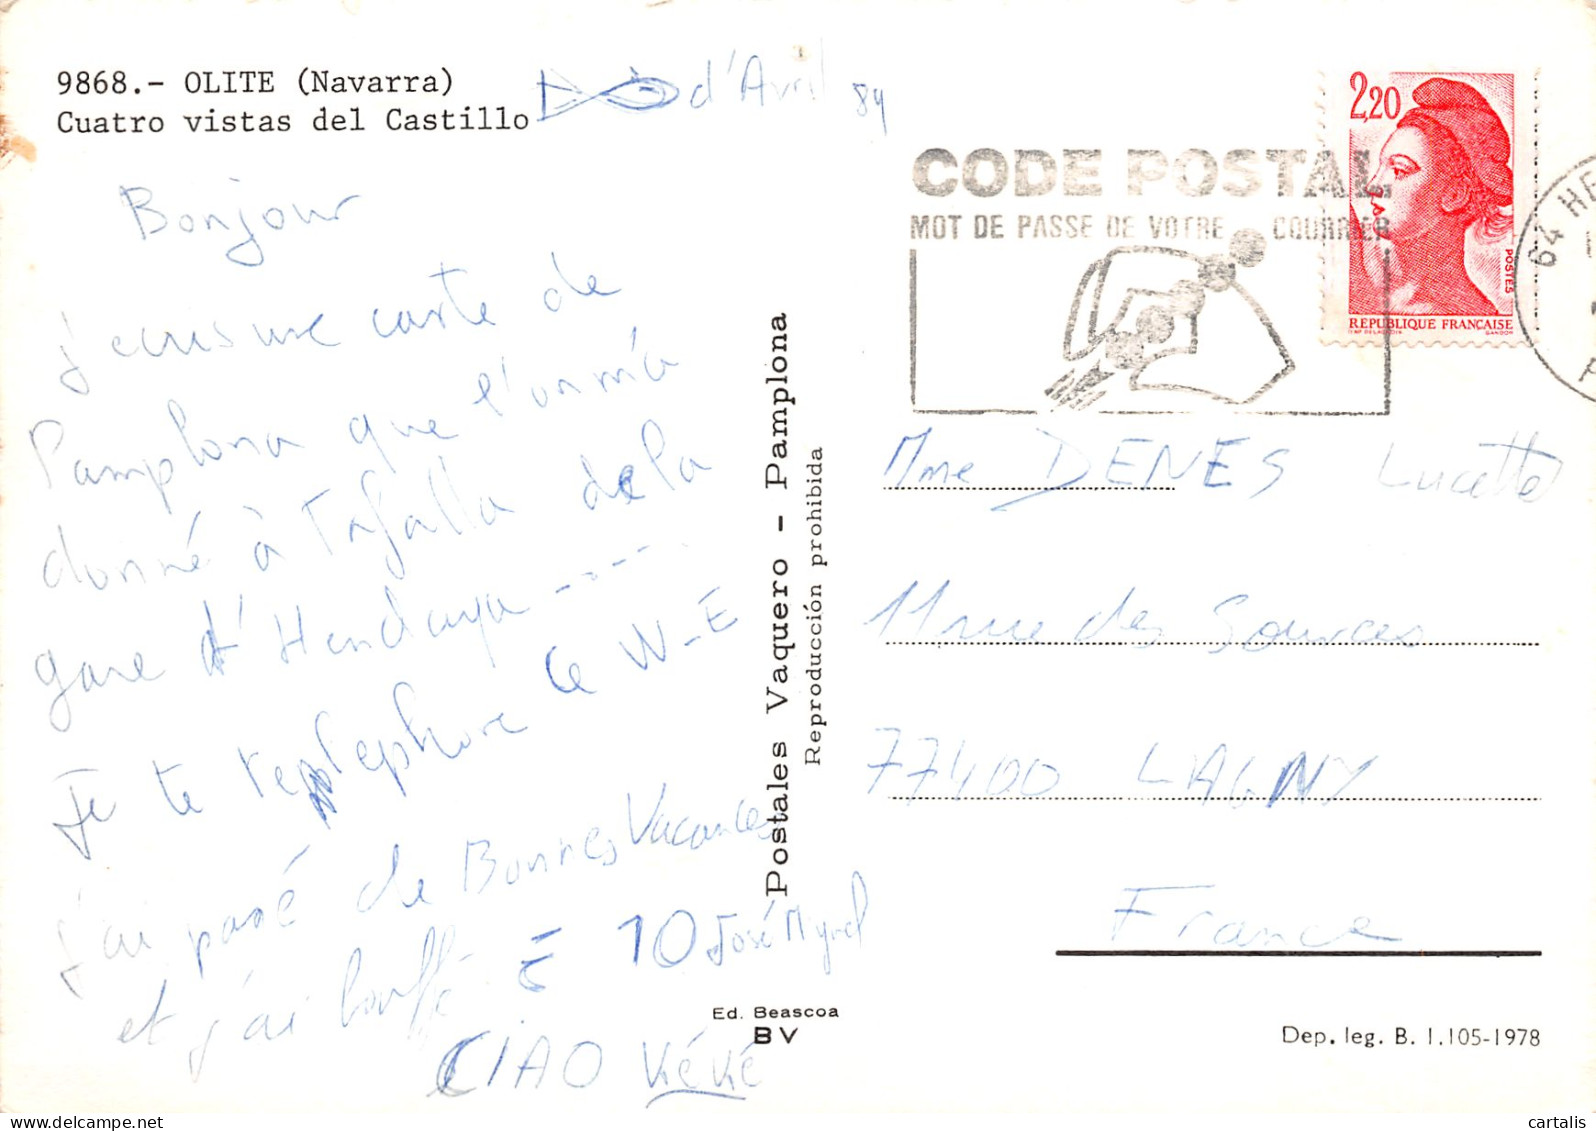 9868.- OLITE (Navarra)
Cuatro vistas del Castillo
d'Avril 84
Bonjour
j'ecris une carte de
Pamplona que l'on m'a
donné à Tafalla de la
gare d'Hendaya ----
Je te telephone ce W-E
j'ai passé de Bonnes Vacances
et j'ai bouffé 10 José Myguel
CIAO Kéké
Postales Vaquero - Pamplona
Reproducción prohibida
Ed. Beascoa
BV
CODE POSTAL
MOT DE PASSE DE VOTRE COURRIER
2,20
POSTES
REPUBLIQUE FRANCAISE
GANDON
64 HE
Mme DENES Lucette
11 rue des Sources
77400 LAGNY
France
Dep. leg. B. 1.105-1978
cartalis